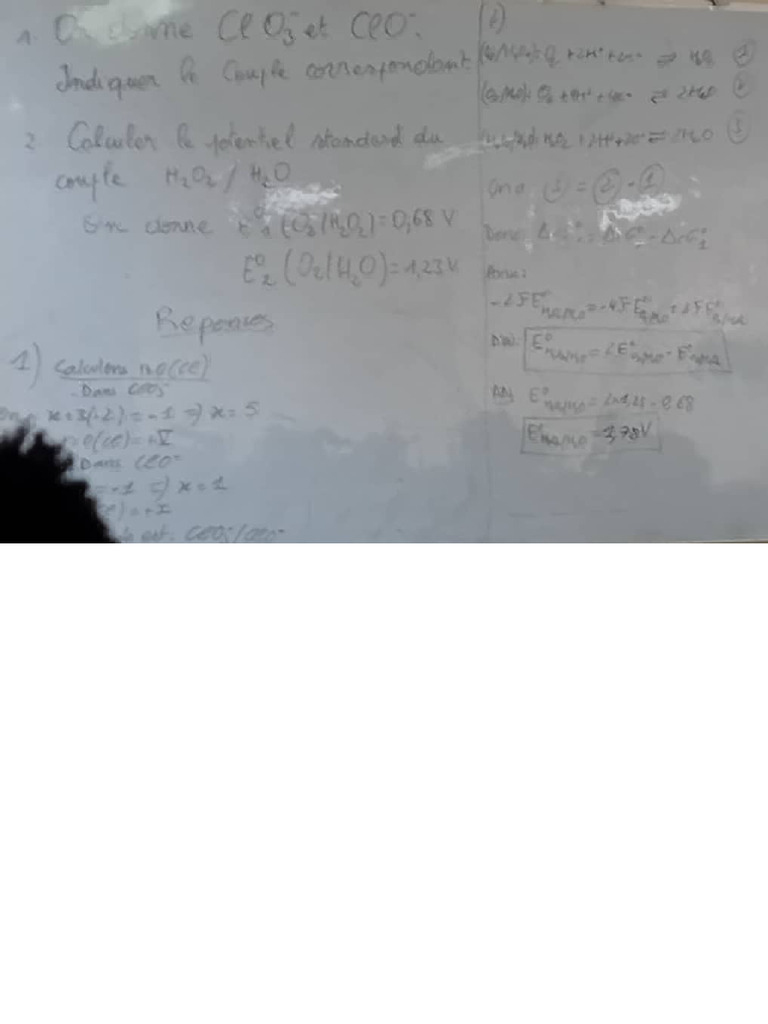 1. On donne ClO3- et ClO-.
Indiquer le couple correspondant
2 Calculer le potentiel standard du
couple H2O2 / H2O
On donne E°1 (O2/H2O2) = 0,68 V
E°2 (O2/H2O) = 1,23 V
Reponses
1) Calculons n.o(Cl)
- Dans ClO3-
x + 3(-2) = -1 => x = 5
n.o(Cl) = +V
Dans ClO-
= -1 => x = 1
= +I
est: ClO3-/ClO-
(O2/H2O2): O2 + 2H+ + 2e- ⇌ H2O2 (1)
(O2/H2O): O2 + 4H+ + 4e- ⇌ 2H2O (2)
(H2O2/H2O): H2O2 + 2H+ + 2e- ⇌ 2H2O (3)
On a (3) = (2) - (1)
Donc: ΔrG°3 = ΔrG°2 - ΔrG°1
-2FE°H2O2/H2O = -4FE°O2/H2O + 2FE°O2/H2O2
E°H2O2/H2O = 2E°O2/H2O - E°O2/H2O2
AN E°H2O2/H2O = 2x1,23 - 0,68
E°H2O2/H2O = 1,78V